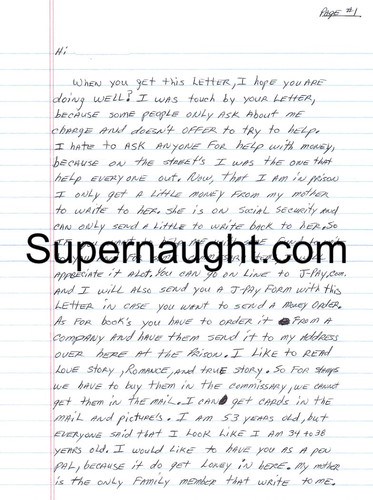 Page #1
Hi
When you get this Letter, I hope you are
doing well? I was touch by your Letter,
because some people only ask about me
charge and doesn't offer to try to help.
I hate to ask anyone for help with money,
because on the street's I was the one that
help everyone out. Now, that I am in prison
I only get a little money from my mother
to write to her. She is on Social Security and
can only send a little to write back to her. So
Supernaught.com
appreciate it alot. You can go on line to J-Pay.com.
and I will also send you a J-Pay Form with this
Letter in case you want to send a money order.
As for book's you have to order it From a
company and have them send it to my address
over here at the Prison. I like to read
Love story, Romance, and true story. So for stamps
we have to buy them in the commissary, we cannot
get them in the mail. I can get cards in the
mail and picture's. I am 53 years old, but
everyone said that I look like I am 34 to 38
years old. I would like to have you as a pen
pal, because it do get Loney in here. My mother
is the only Family member that write to me.